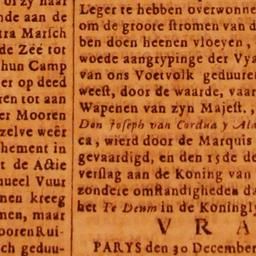 of zy naar
nde aan de
tra Marsch
de Zee tot
hun Camp
er op deed
ren tot aan
er Mooren
zelve weêr
hement in
t de Actie
nueel Vuur
nen kreeg
men, maar
oorenRui-
ch geduu-
Leger te hebben overwonne
om de groote stromen van d
ben doen heenen vloeyen,
woede aangrypinge der Vya
van ons Voetvolk geduure
weest, door de waarde, vaar
Wapenen van zyn Majest.,
Don Joseph van Cordua y Ala
ca, wierd door de Marquis
gevaardigd, en den 15 de de
verslag aan de Koning van
zondere omstandigheden da
het Te Deum in de Koninglj
V R A
PARYS den 30 December